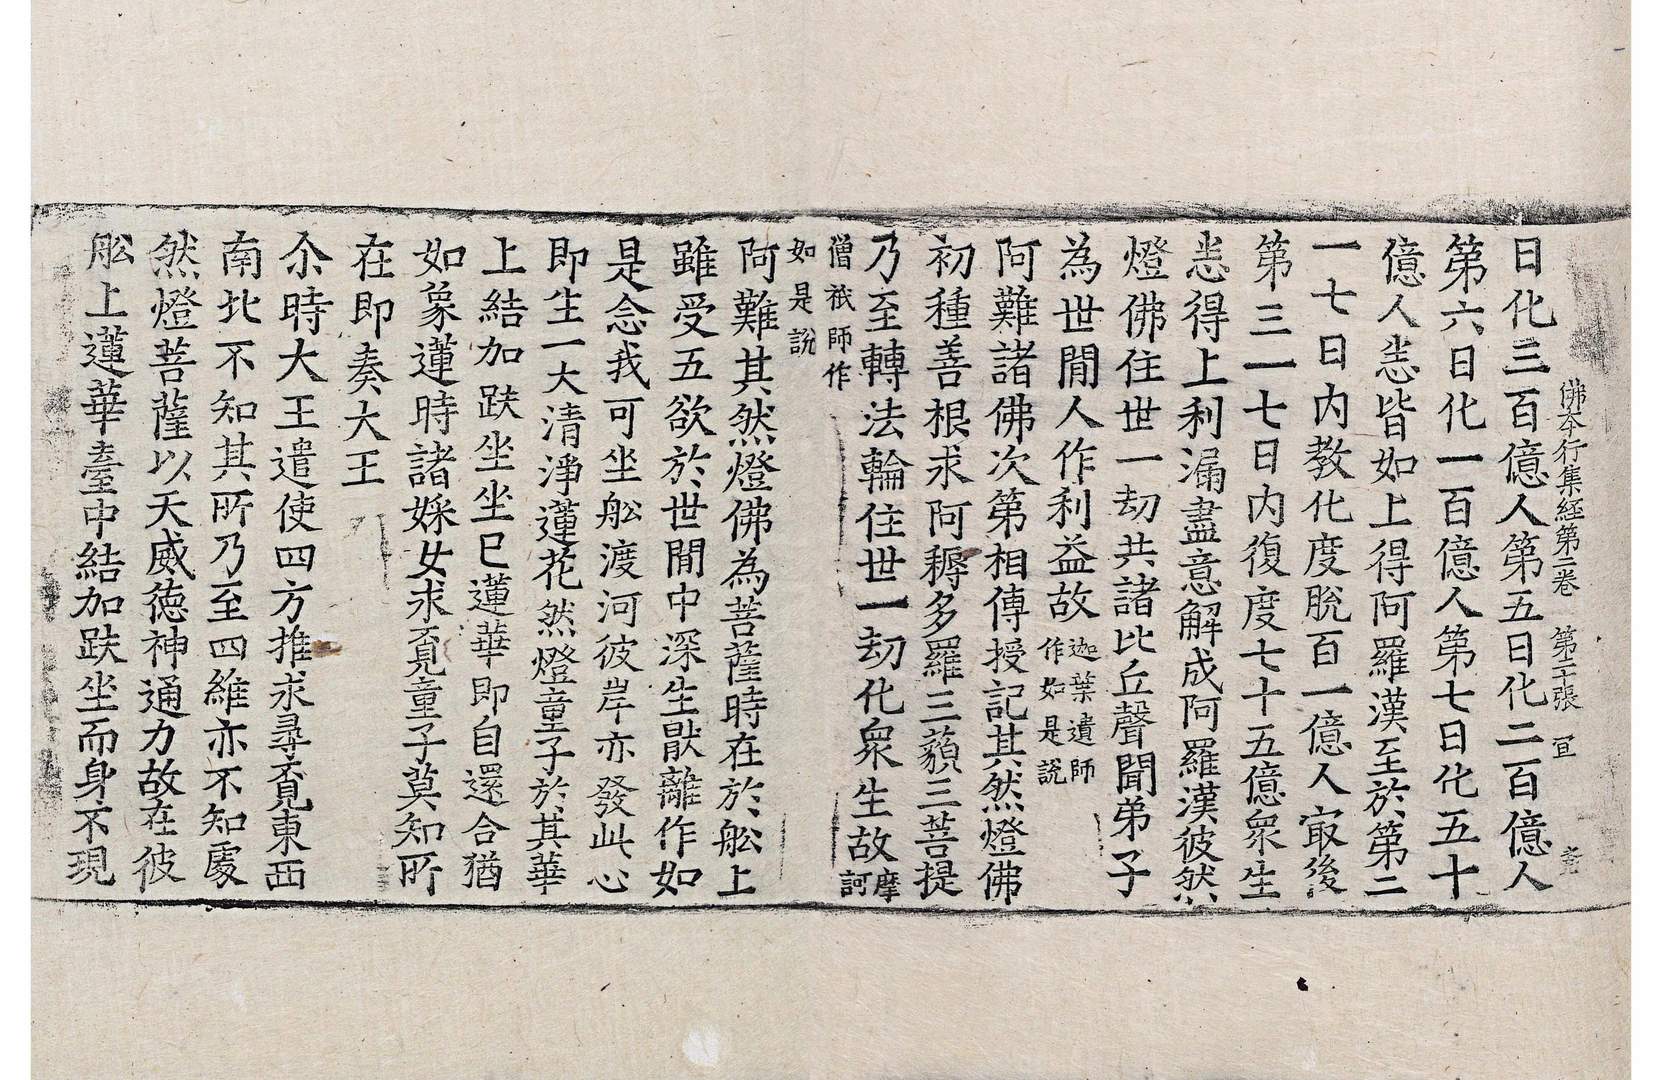 佛本行集経第二卷 第二十張 冝
日化三百億人第五日化二百億人
第六日化一百億人第七日化五十
億人恙皆如上得阿羅漢至於第二
一七日内教化度脫百一億人㝡後
第三一七日内復度七十五億衆生
恙得上利漏盡意解成阿羅漢彼然
燈佛住世一劫共諸比丘聲聞弟子
為世閒人作利益故 迦葉遺師作如是說
阿難諸佛次第相傳授記其然燈佛
初種善根求阿耨多羅三藐三菩提
乃至轉法輪住世一劫化衆生故 摩訶
僧祇師作如是說
阿難其然燈佛為菩薩時在於舩上
雖受五欲於世閒中深生猒離作如
是念我可坐舩渡河彼岸亦發此心
即生一大清淨蓮花然燈童子於其華
上結加趺坐坐巳蓮華即自還合猶
如象蓮時諸婇女求覔童子莫知所
在即奏大王
尒時大王遣使四方推求尋覔東西
南北不知其所乃至四維亦不知處
然燈菩薩以天威徳神通力故在彼
舩上蓮華臺中結加趺坐而身不現